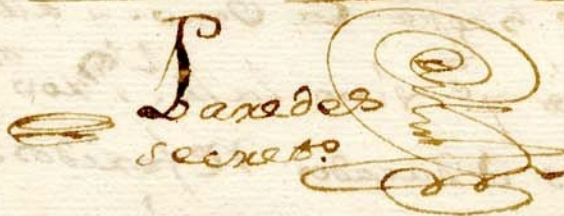 Paredes
secretº